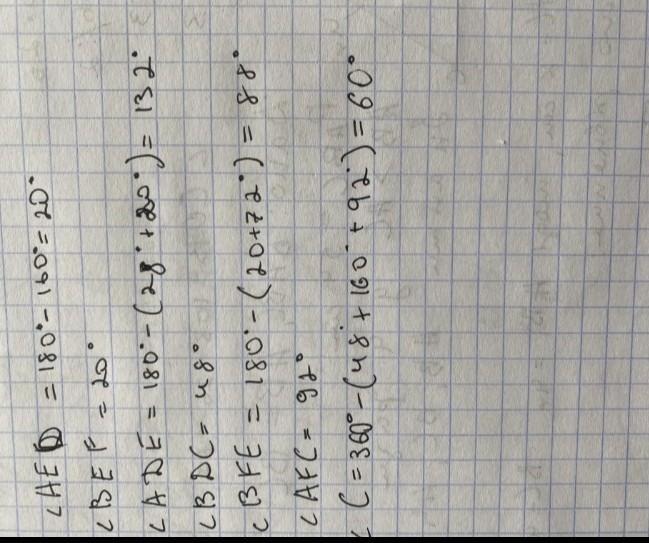 ∠AED = 180° - 160° = 20°
∠BEF = 20°
∠ADE = 180° - (28° + 20°) = 132°
∠BDC = 48°
∠BFE = 180° - (20 + 72°) = 88°
∠AFC = 92°
∠C = 360° - (48° + 160° + 92°) = 60°